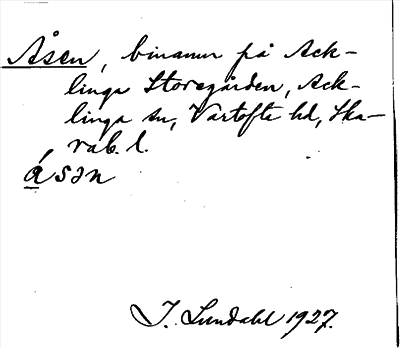 Åsen, binamn på Ack-
linga Storegården, Ack-
linga sn, Vartofta hd, Ska-
rab. l.
åsən
I. Lundahl 1927.